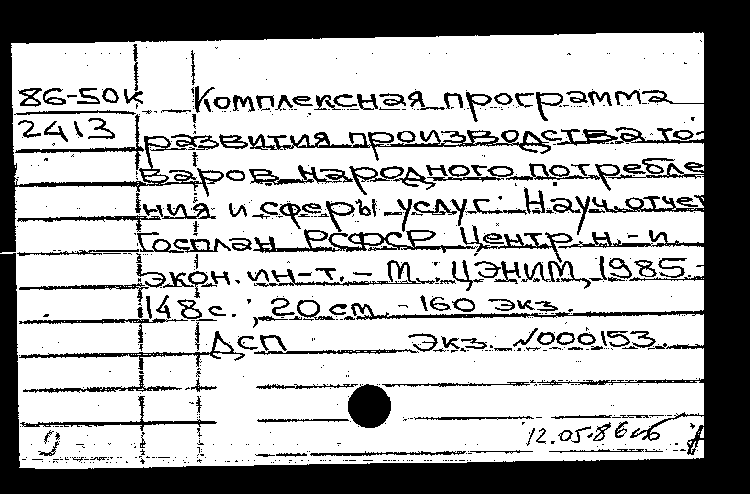 86-50к Комплексная программа
2413 развития производства то-
варов народного потребле
ния и сферы услуг: Науч. отчет
Госплан РСФСР, Центр. н.-и.
экон. ин-т. – М.: ЦЭНИМ, 1985.-
148с.; 20 см. - 160 экз.
ДСП Экз. №000153.
12.05.86
9